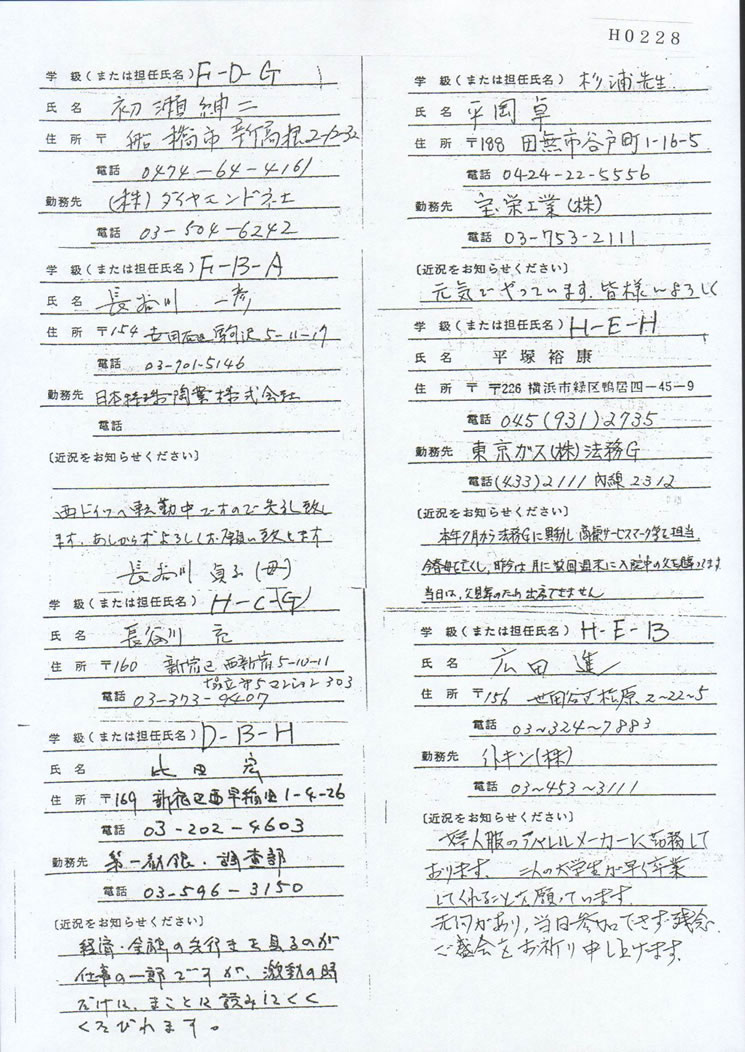 H0228
学 級(または担任氏名) F-D-G
氏 名 初瀬紳二
住 所 〒 船橋市新高根2-12-32
電話 0474-64-4161
勤務先 (株)ダイヤモンド
電話 03-504-6242
学 級(または担任氏名) F-B-A
氏 名 長谷川
住 所 〒154 世田谷区駒沢5-11-17
電話 03-701-5146
勤務先 日本特殊陶業株式会社
電話
〔近況をお知らせください〕
西ドイツへ転勤中ですので失礼致し
ます。あしからずよろしくお願い致します
長谷川 貞子(母)
学 級(または担任氏名) H-C-(G)
氏 名 長谷川
住 所 〒160 新宿区西新宿5-10-11
協立第5マンション303
電話 03-373-9407
学 級(または担任氏名) D-B-H
氏 名 比田 宏
住 所 〒169 新宿区西早稲田1-4-26
電話 03-202-4603
勤務先 第一勧銀・調査部
電話 03-596-3150
〔近況をお知らせください〕
経済・金融の先行きを見るのが
仕事の一部ですが、激動の時
だけに、まことに読みにくく
くたびれます。
学 級(または担任氏名) 杉浦先生
氏 名 平岡卓
住 所 〒188 田無市谷戸町1-16-5
電話 0424-22-5556
勤務先 宝栄工業(株)
電話 03-753-2111
〔近況をお知らせください〕
元気でやっています.皆様によろしく
学 級(または担任氏名) H-E-H
氏 名 平塚裕康
住 所 〒 〒226 横浜市緑区鴨居四-45-9
電話 045(931)2735
勤務先 東京ガス(株)法務G
電話 (433)2111 内線2312
〔近況をお知らせください〕
本年7月から法務Gに異動し 商標サービスマーク等を担当。
今春母を亡くし、昨今は月に数回週末に入院中の父を
当日は、父見舞のため出席できません
学 級(または担任氏名) H-E-B
氏 名 広田進
住 所 〒156 世田谷区松原2~22~5
電話 03~324~7883
勤務先 イトキン(株)
電話 03~453~3111
〔近況をお知らせください〕
婦人服のアパレルメーカーに勤務して
おります。 二人の大学生が早く卒業
してくれることを願っています.
先約があり,当日参加できず残念.
ご盛会をお祈り申し上げます.